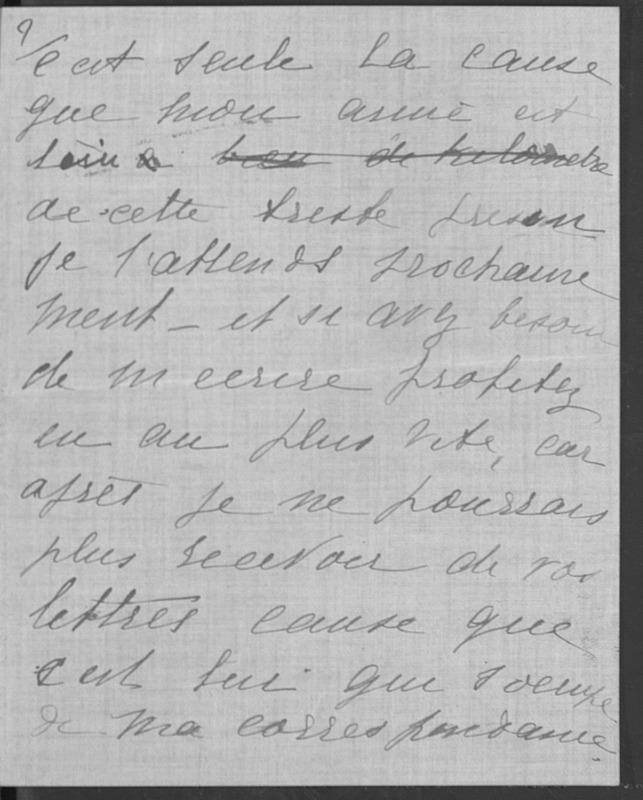 9/
c'est seule la cause
que mon armé est
loin a bien de kilometre
de cette triste prison
je l'attends prochaine
ment _ et si avez besoin
de m ecrire profitez
en au plus vite, car
après je ne pourrais
plus recevoir de vos
lettres cause que
c est lui qui s'ocupe
de ma correspondanse.